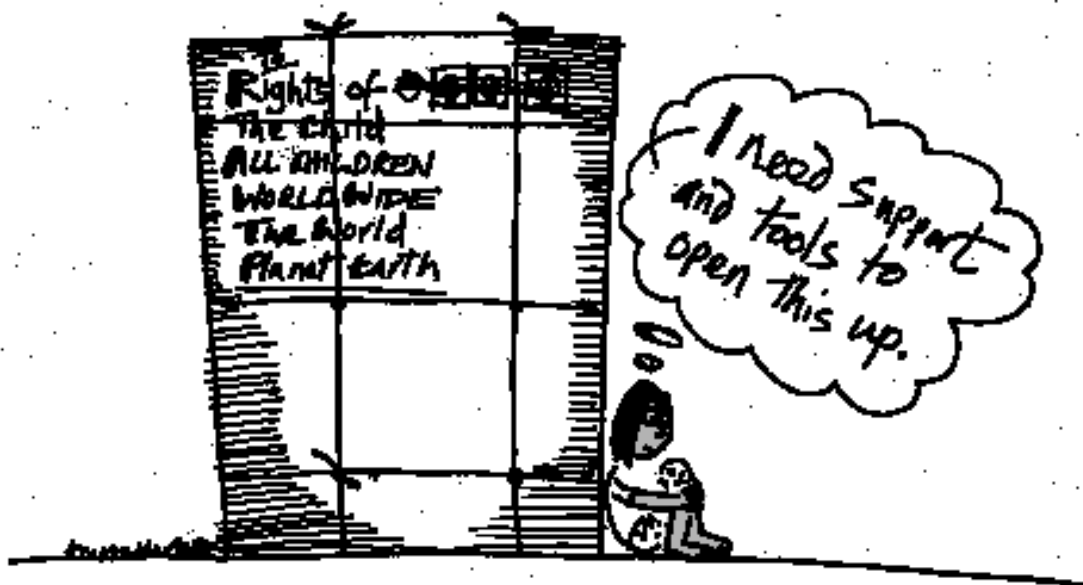 The
Rights of
The Child
ALL CHILDREN
WORLDWIDE
The World
Planet Earth
I need support
and tools to
open this up.